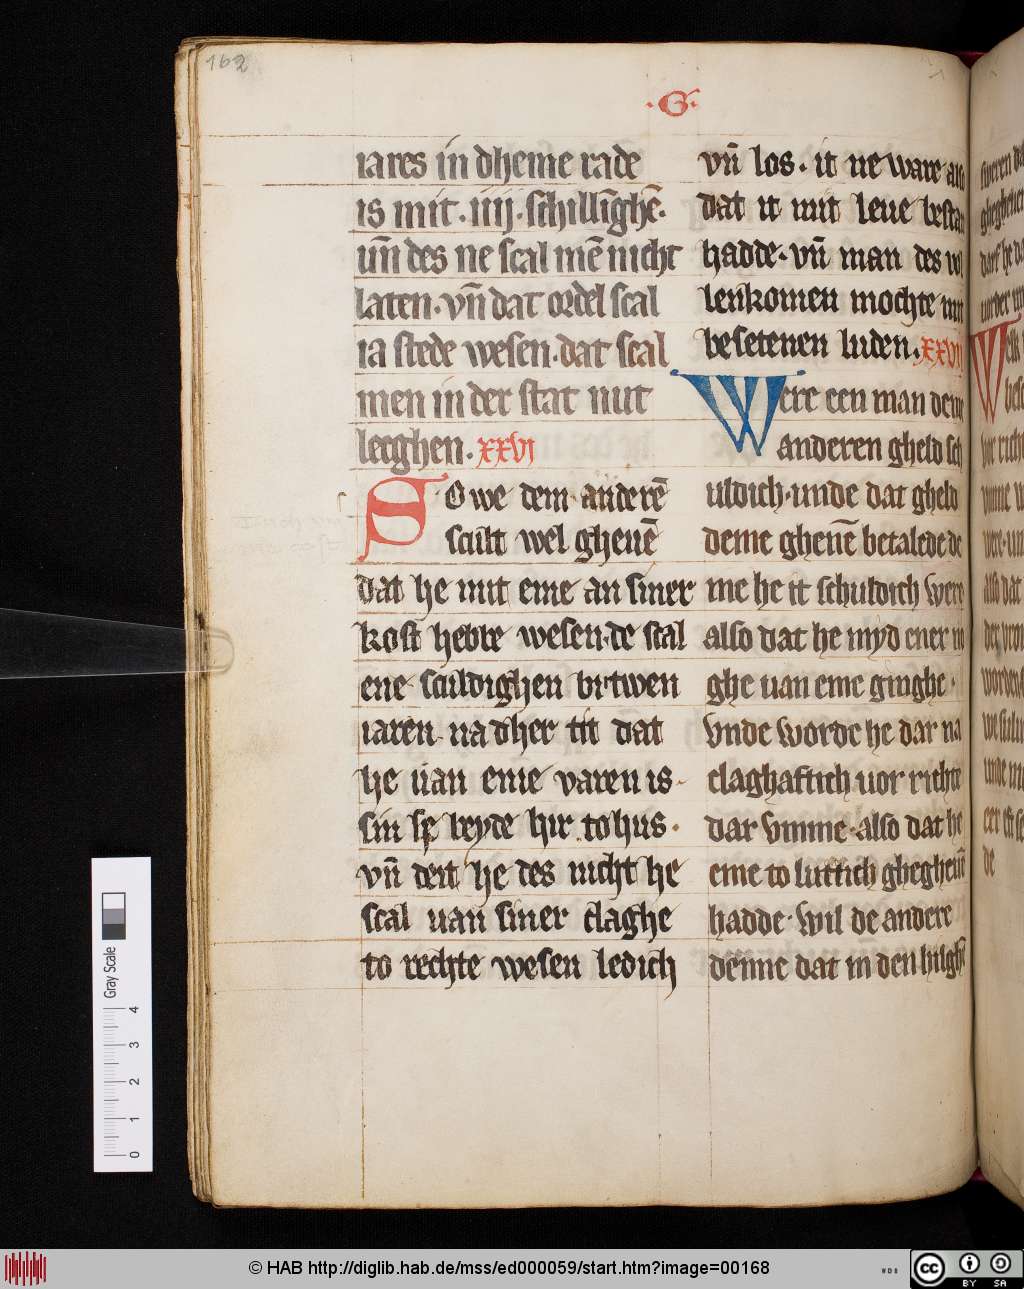 162
·G·
iares in dheme rade
is mit · iiij · schillīghē·
un̄ des ne scal mē nicht
laten · vn̄ dat ordel scal
ia stede wesen · dat scal
men in der stat nut
lecghen · xxvi
SO we dem anderē
scult wel gheuē
dat he mit eme an siner
kost hebbe wesen · de scal
ene sculdighen bi twen
iaren na dher tit dat
he uan eme varen is ·
sin se beyde hir to hus ·
vn̄ deit he des nicht he
scal uan siner claghe
to rechte wesen ledich
vn̄ los · it ne ware also
dat it mit leue bestan
hadde · vn̄ man des vol
lenkomen mochte mit
besetenen luden · xxvij
Were een man deme
anderen gheld sch
uldich · unde dat gheld
deme gheuē betalede de
me he it schuldich were
also dat he myd ener no
ghe uan eme ginghe ·
vnde worde he dar na
claghaftich uor richte
dar vmme · also dat he
eme to luttich ghegheuē
hadde · wil de andere
denne dat in den hilghē
Gray Scale
0 1 2 3 4
© HAB http://diglib.hab.de/mss/ed000059/start.htm?image=00168
cc BY SA